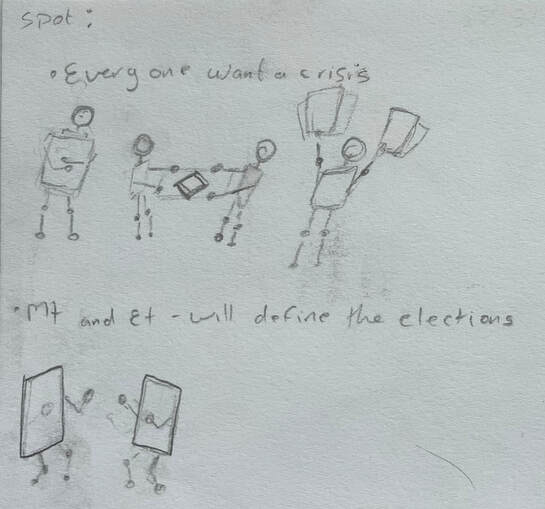 spot:
• Everyone want a crisis
• Mt and Et - will define the elections